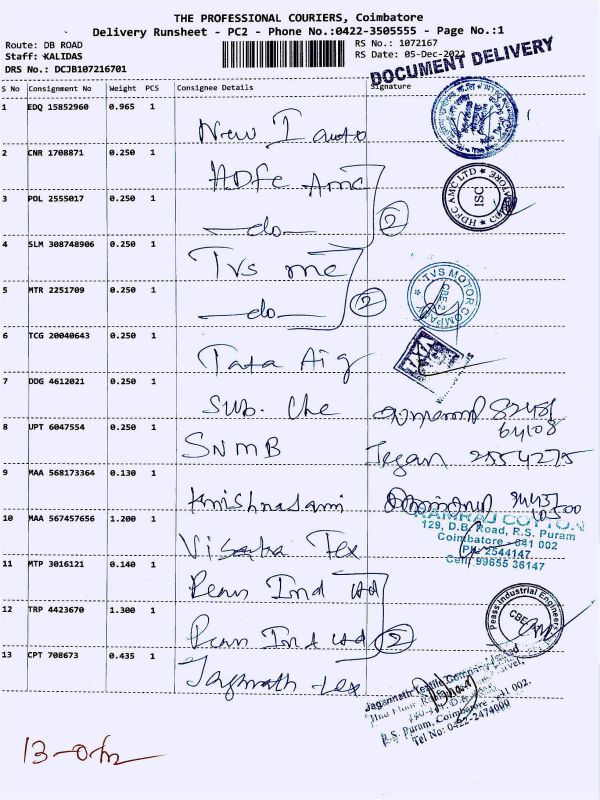 THE PROFESSIONAL COURIERS, Coimbatore
Delivery Runsheet - PC2 - Phone No.:0422-3505555 - Page No.:1
Route: DB ROAD
RS No.: 1072167
Staff: KALIDAS
RS Date: 05-Dec-2023
DRS No.: DCJB107216701
DOCUMENT DELIVERY
S No Consignment No Weight PCS Consignee Details Signature
1 EDQ 15852960 0.965 1 New I auto
2 CNR 1708871 0.250 1 HDFC Amc
HDFC AMC LTD ISC
3 POL 2555017 0.250 1 —do— 2
4 SLM 308748906 0.250 1 Tvs mc
TVS MOTOR COMPANY CBE-2
5 MTR 2251709 0.250 1 —do— 2
6 TCG 20040643 0.250 1 Tata Aig
TATA
7 DDG 4612021 0.250 1 Sub. Che
8 UPT 6047554 0.250 1 SNMB Jegan 2554275
9 MAA 568173364 0.130 1
10 MAA 567457656 1.200 1 Tex
RAMRAJ COTTON
129, D.B. Road, R.S. Puram
Coimbatore - 641 002
PH: 2544147
Cell: 99655 36147
11 MTP 3016121 0.140 1 Ind
12 TRP 4423670 1.300 1 Ind 2
Peass Industrial Engineers
CBE
13 CPT 708673 0.435 1 Jagannath tex
Jagannath Textile Company
R.S. Puram, Coimbatore - 641 002.
Tel No: 0422-2474000